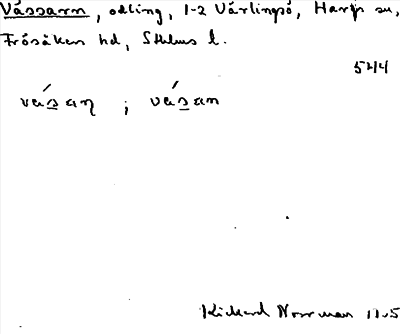 Vässarn, odling, 1-2 Vårlingsö, Hargs sn,
Frösåkers hd, Sthlms l.
544
väsaɳ ; väsan
Rickard Norrman 1925